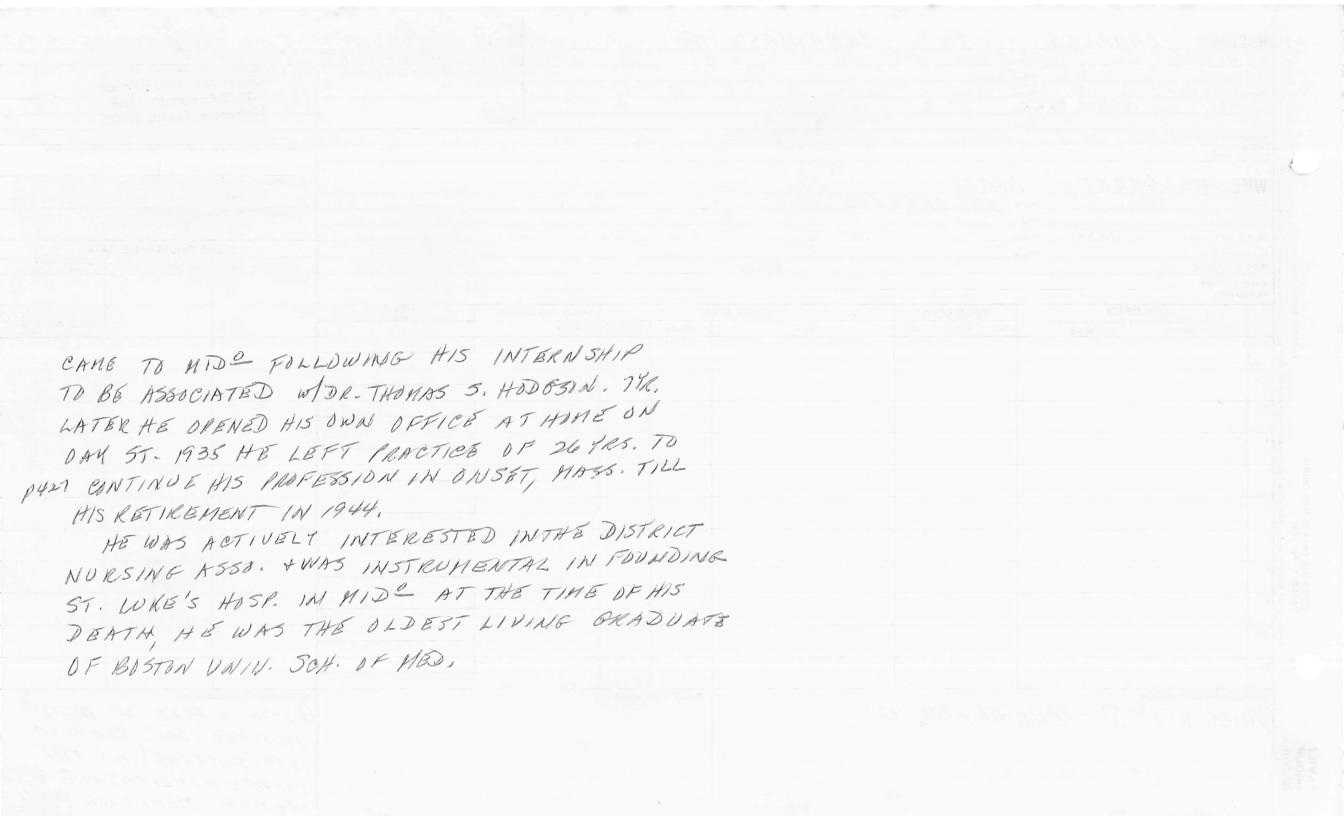 CAME TO MIDº FOLLOWING HIS INTERNSHIP
TO BE ASSOCIATED W/DR. THOMAS S. HODGSON. 7YR.
LATER HE OPENED HIS OWN OFFICE AT HOME ON
OAK ST. 1935 HE LEFT PRACTICE OF 26 YRS. TO
P427 CONTINUE HIS PROFESSION IN ONSET, MASS. TILL
HIS RETIREMENT IN 1944.
HE WAS ACTIVELY INTERESTED IN THE DISTRICT
NURSING ASSO. + WAS INSTRUMENTAL IN FOUNDING
ST. LUKE'S HOSP. IN MIDº AT THE TIME OF HIS
DEATH, HE WAS THE OLDEST LIVING GRADUATE
OF BOSTON UNIV. SCH. OF MED.